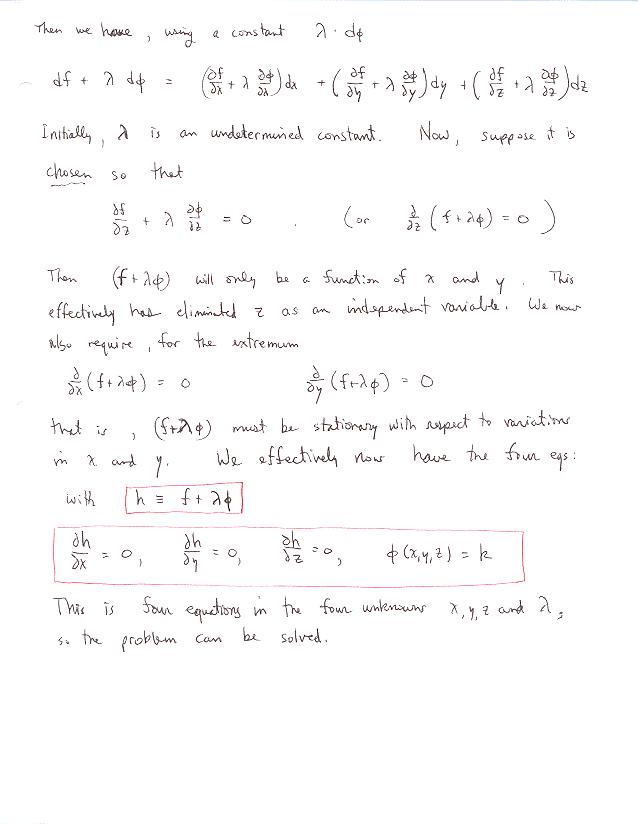 Then we have, using a constant λ · dϕ
df + λ dϕ = (∂f/∂x + λ ∂ϕ/∂x) dx + (∂f/∂y + λ ∂ϕ/∂y) dy + (∂f/∂z + λ ∂ϕ/∂z) dz
Initially, λ is an undetermined constant. Now, suppose it is
chosen so that
∂f/∂z + λ ∂ϕ/∂z = 0 . (or ∂/∂z (f+λϕ) = 0)
Then (f+λϕ) will only be a function of x and y. This
effectively has eliminated z as an independent variable. We now
also require, for the extremum
∂/∂x (f+λϕ) = 0 ∂/∂y (f+λϕ) = 0
that is, (f+λϕ) must be stationary with respect to variations
in x and y. We effectively now have the four eqs:
with h ≡ f + λϕ
∂h/∂x = 0, ∂h/∂y = 0, ∂h/∂z = 0, ϕ(x,y,z) = k
This is four equations in the four unknowns x, y, z and λ,
so the problem can be solved.